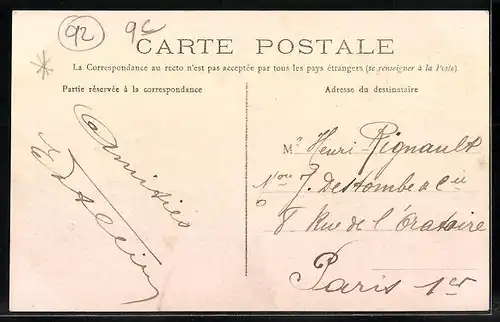 92
9c
CARTE POSTALE
La Correspondance au recto n'est pas acceptée par tous les pays étrangers (se renseigner à la Poste)
Partie réservée à la correspondance
Adresse du destinataire
Amitiés
M. Henri Rignault
Mon J. Destombe & Cie
8 Rue de l'Oratoire
Paris 1er